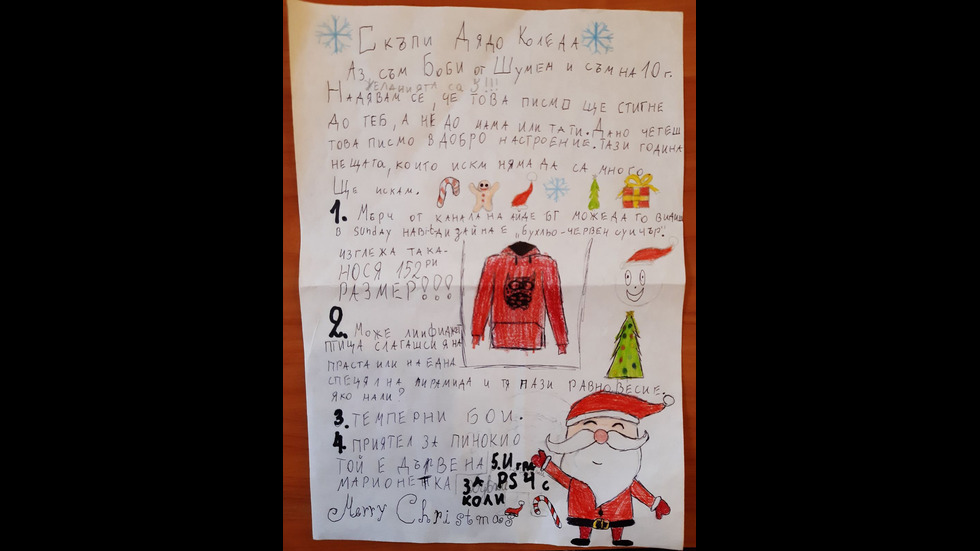 Скъпи Дядо Коледа
Аз съм Боби от Шумен и съм на 10 г.
желанията са 3!!!
Надявам се, че това писмо ще стигне
до теб, а не до мама или тати. Дано четеш
това писмо в добро настроение. Тази година
нещата, които искм няма да са много.
Ще искам.
1. Мърч от канала на Айде БГ може да го видиш
в Sunday
дизайна е „бухльо-червен суичър".
изглежа така-
нося 152ри
размер!!!
2. Може ли
птица слагаш си я на
праста или на една
спецял на пирамида и тя пази равновесие.
яко нали?
3. Темперни бои.
4. Приятел за Пинокио
той е дървена
марионетка
5. Игра
за PS4 с
коли
Merry Christmas